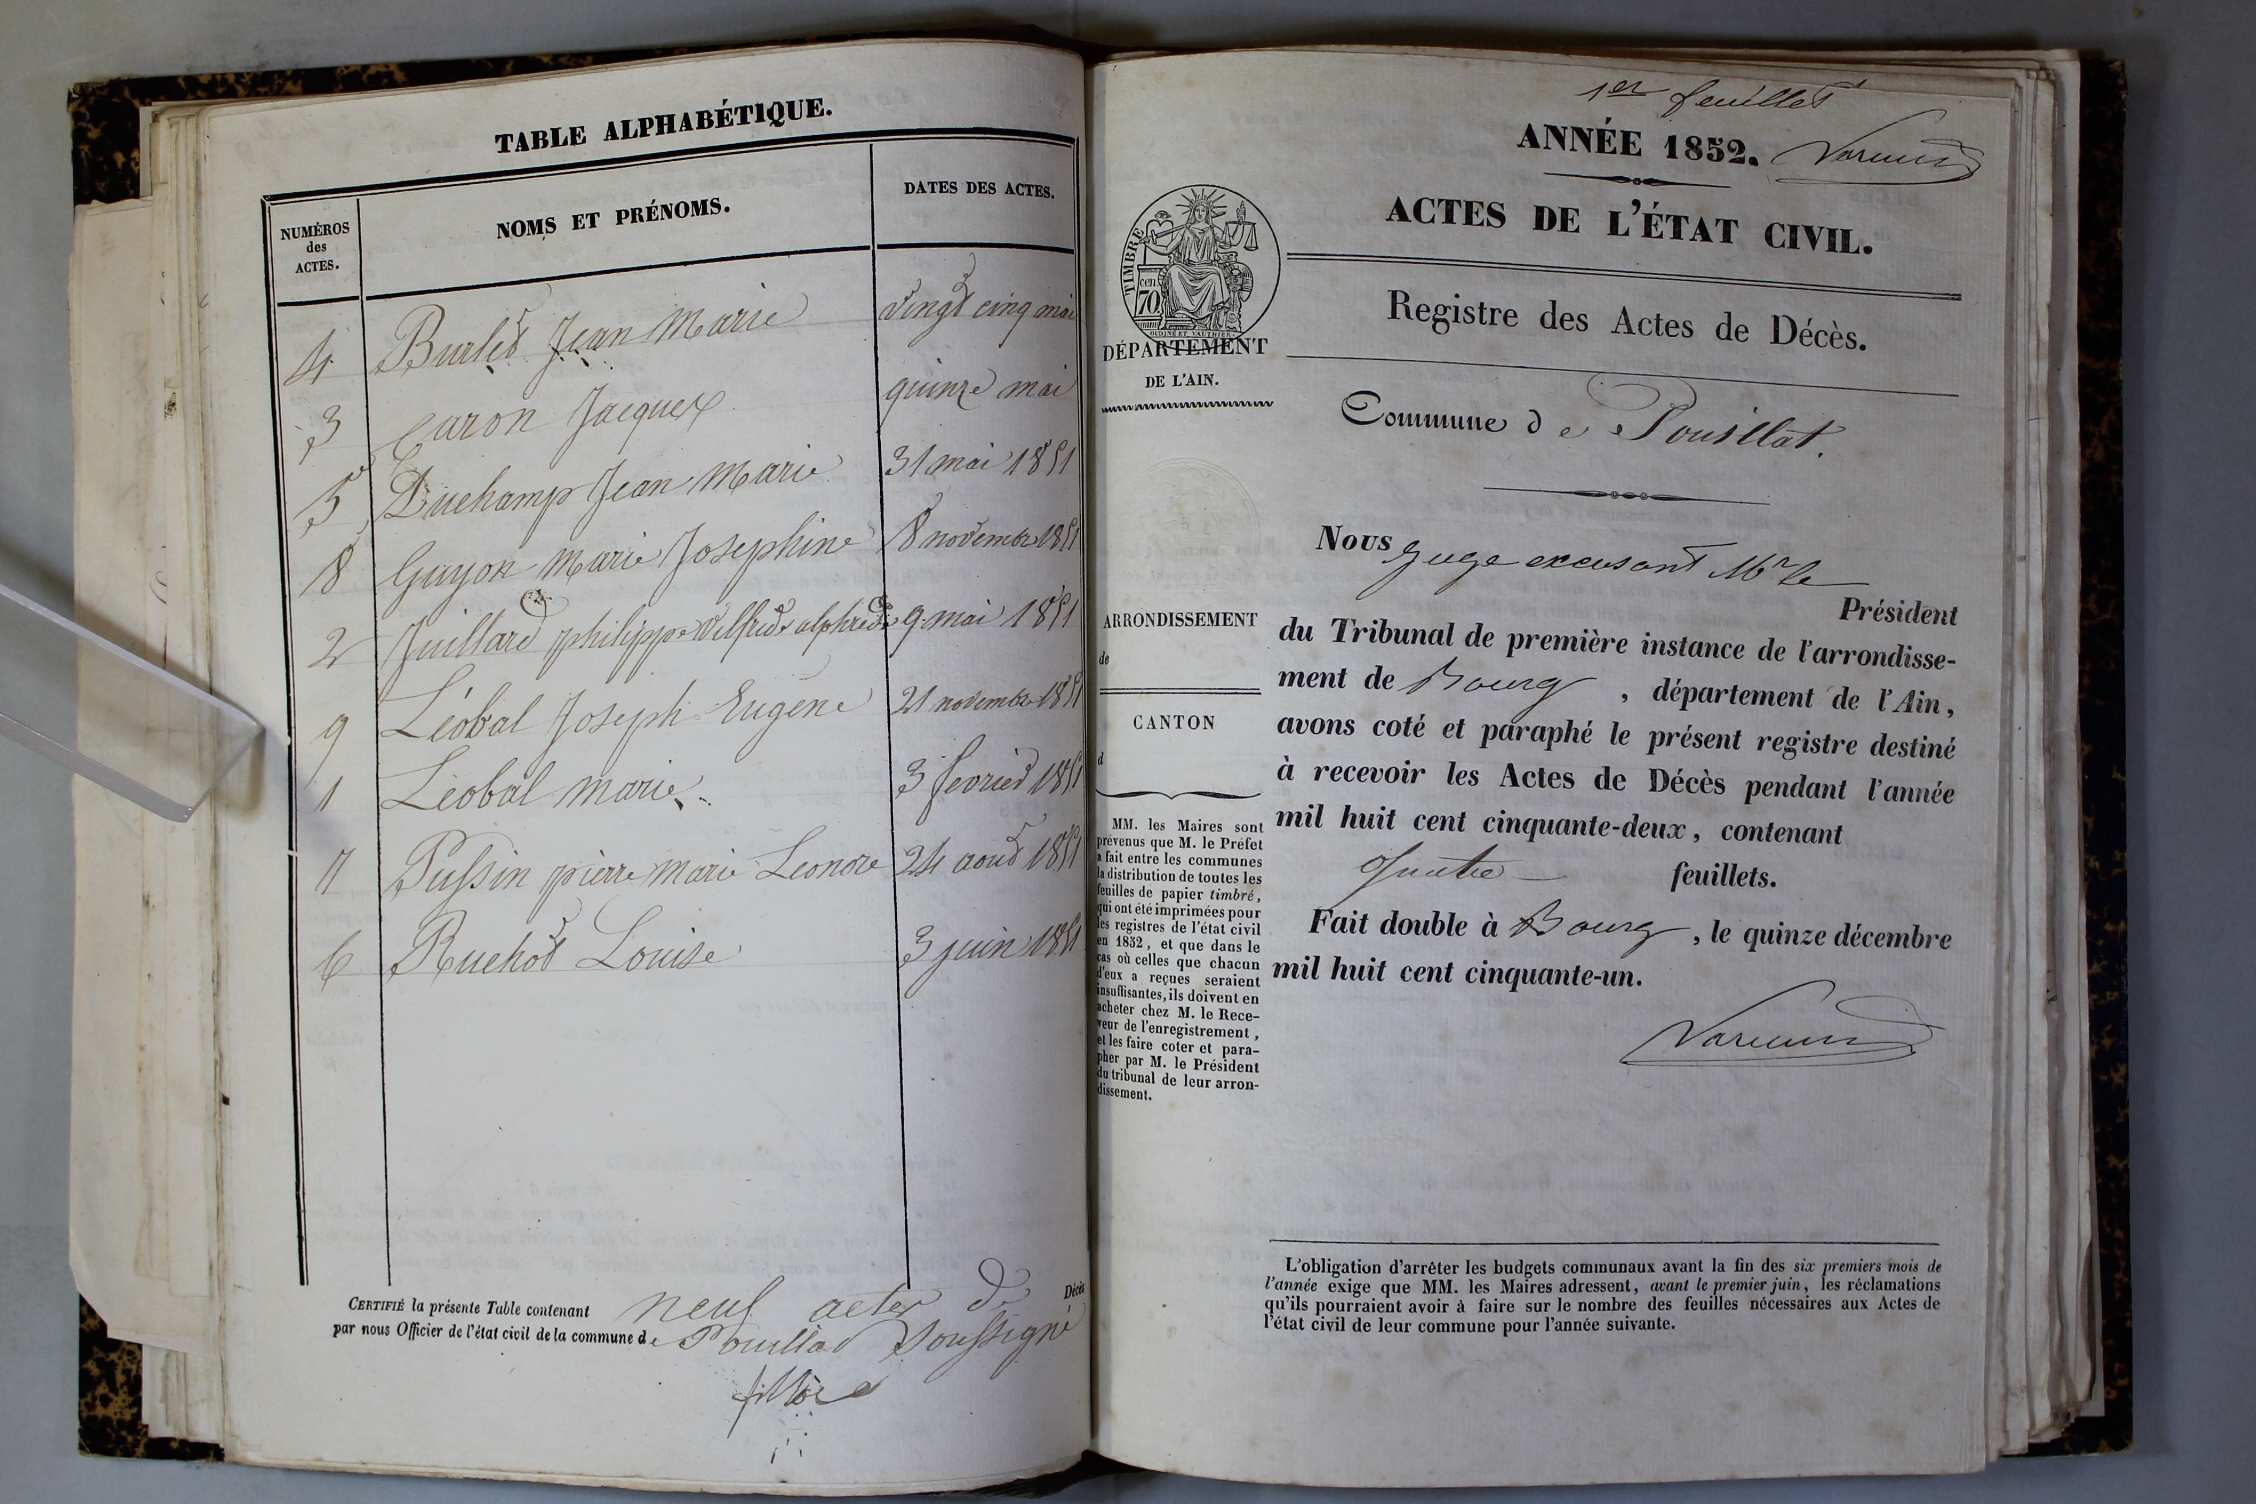 TABLE ALPHABÉTIQUE.
NUMÉROS
des
ACTES.
NOMS ET PRÉNOMS.
DATES DES ACTES.
4 Burlet Jean Marie vingt cinq mai
3 Caron Jacques quinze mai
5 Duchamp Jean Marie 31 mai 1851
8 Guyon Marie Josephine 8 novembre 1851
2 Juillard philippe Wilfride alphrede 9 mai 1851
9 Léobal Joseph Eugène 21 novembre 1851
1 Léobal Marie 3 fevrier 1851
7 Pussin pierre Marie Leonore 24 aout 1851
6 Ruchot Louise 3 juin 1851
CERTIFIÉ la présente Table contenant neuf actes de Décès
par nous Officier de l'état civil de la commune de Pouillat Soussigné
1er feuillet
ANNÉE 1852.
ACTES DE L'ÉTAT CIVIL.
TIMBRE
70 cen
OUDINÉ ET VAUTHIER
DÉPARTEMENT
DE L'AIN.
Registre des Actes de Décès.
Commune de Pouillat.
ARRONDISSEMENT
de
CANTON
d
MM. les Maires sont
prévenus que M. le Préfet
a fait entre les communes
la distribution de toutes les
feuilles de papier timbré,
qui ont été imprimées pour
les registres de l'état civil
en 1852, et que dans le
cas où celles que chacun
d'eux a reçues seraient
insuffisantes, ils doivent en
acheter chez M. le Rece-
veur de l'enregistrement,
et les faire coter et para-
pher par M. le Président
du tribunal de leur arron-
dissement.
Nous Juge excusant Mr le
Président
du Tribunal de première instance de l'arrondisse-
ment de Bourg, département de l'Ain,
avons coté et paraphé le présent registre destiné
à recevoir les Actes de Décès pendant l'année
mil huit cent cinquante-deux, contenant
quatre feuillets.
Fait double à Bourg, le quinze décembre
mil huit cent cinquante-un.
L'obligation d'arrêter les budgets communaux avant la fin des six premiers mois de
l'année exige que MM. les Maires adressent, avant le premier juin, les réclamations
qu'ils pourraient avoir à faire sur le nombre des feuilles nécessaires aux Actes de
l'état civil de leur commune pour l'année suivante.